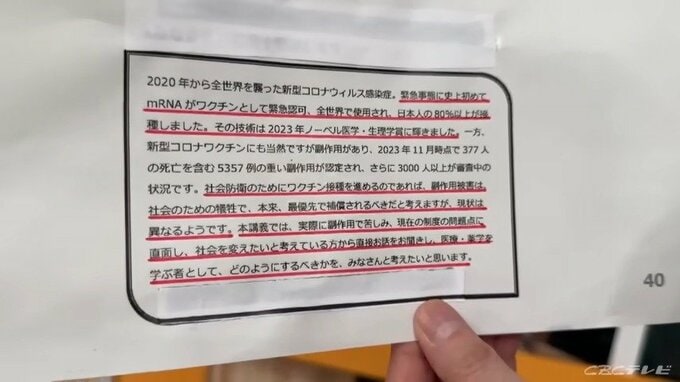 2020年から全世界を襲った新型コロナウィルス感染症。緊急事態に史上初めて
mRNAがワクチンとして緊急認可、全世界で使用され、日本人の80%以上が接
種しました。その技術は2023年ノーベル医学・生理学賞に輝きました。一方、
新型コロナワクチンにも当然ですが副作用があり、2023年11月時点で377人
の死亡を含む5357例の重い副作用が認定され、さらに3000人以上が審査中の
状況です。社会防衛のためにワクチン接種を進めるのであれば、副作用被害は
社会のための犠牲で、本来、最優先で補償されるべきだと考えますが、現状は
異なるようです。本講義では、実際に副作用で苦しみ、現在の制度の問題点に
直面し、社会を変えたいと考えている方から直接お話をお聞きし、医療・薬学を
学ぶ者として、どのようにするべきかを、みなさんと考えたいと思います。
40
CBCテレビ